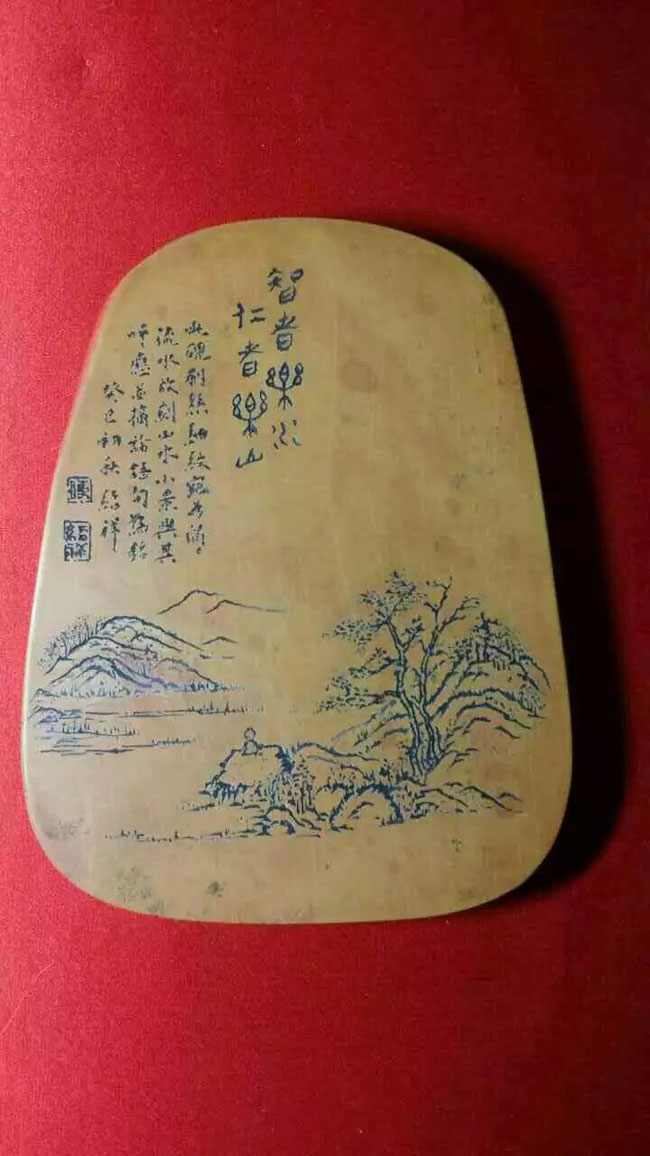 智者樂水
仁者樂山
此硯刷絲細紋宛若潺々
流水故刻山水小景與其
呼應並摘論語句為銘
癸巳初秋紹祥
紹祥